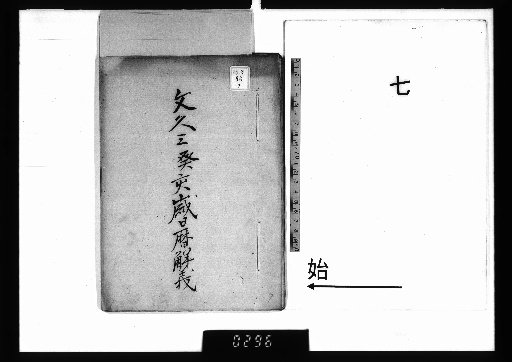 七
始
文久三癸亥歳日暦解義
0296